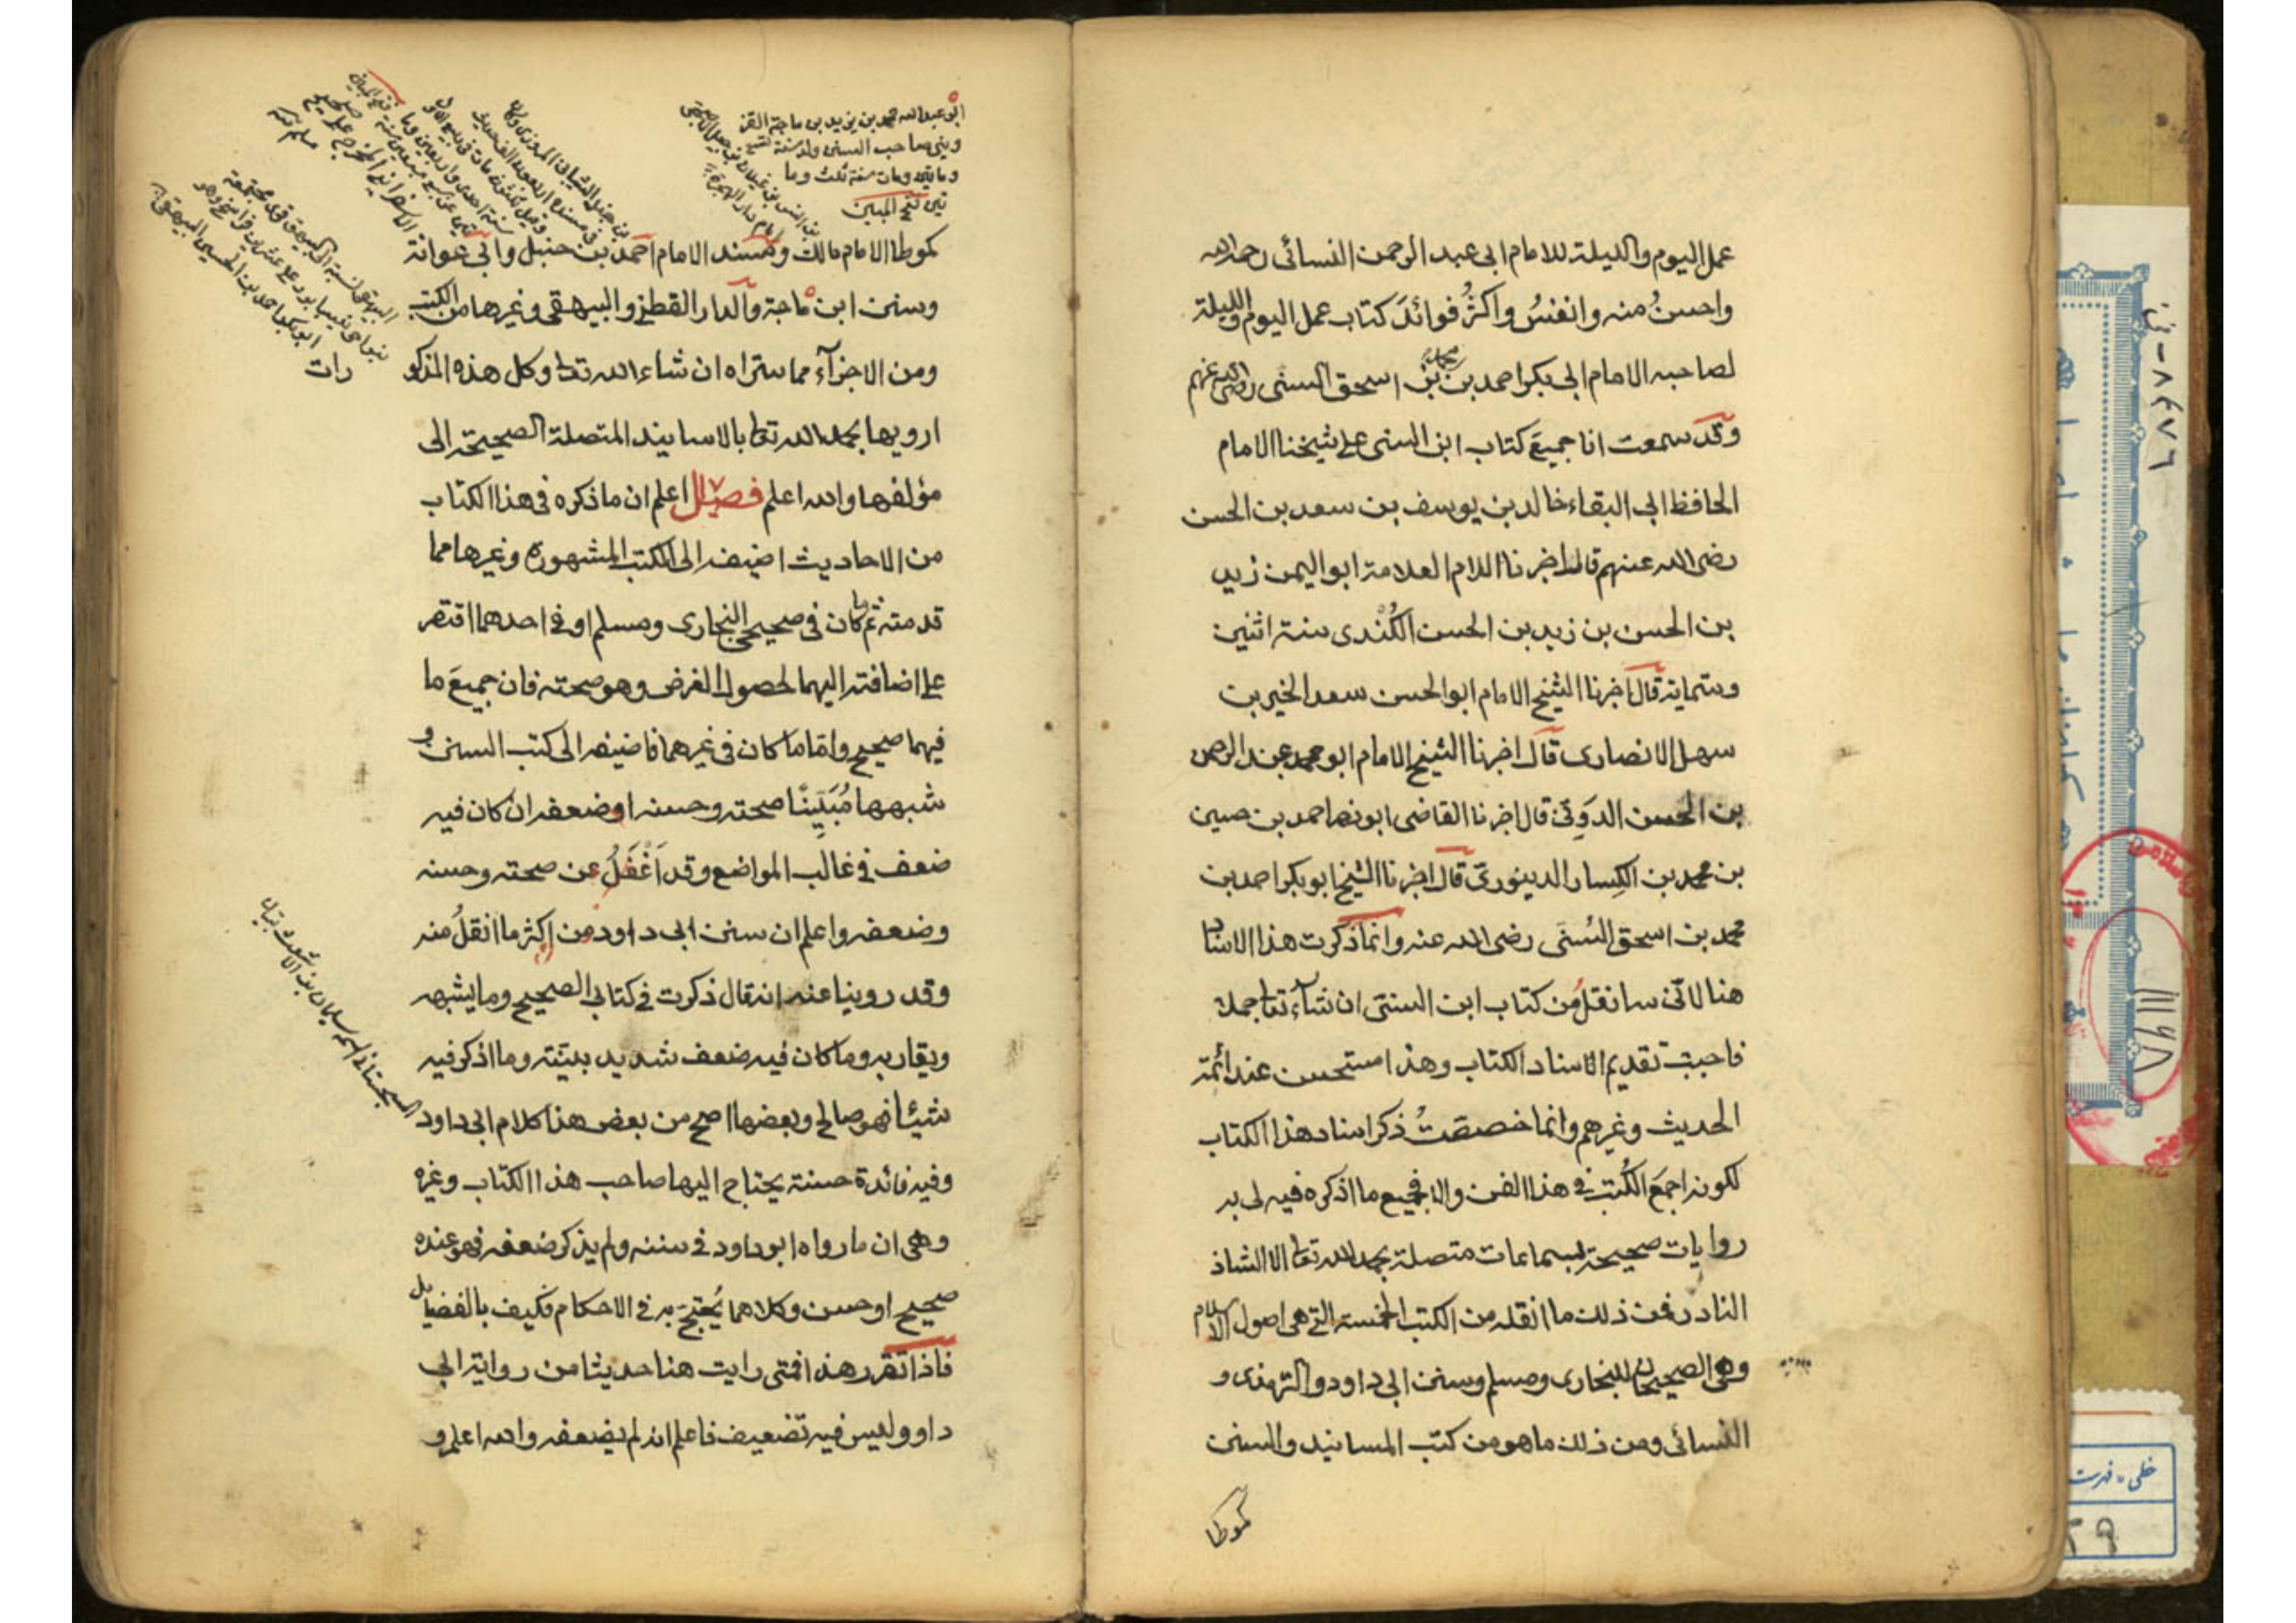 عمل اليوم والليلة للامام ابى عبد الرحمن النسائى رحمه الله
واحسنُ منه وانفسُ واكثرُ فوائدَ كتاب عمل اليوم والليلة
لصاحبه الامام ابى بكر احمد بن محمد بن اسحق السنى رضى الله عنهم
وقد سمعت انا جميعَ كتاب ابن السنى على شيخنا الامام
الحافظ ابى البقاء خالد بن يوسف بن سعد بن الحسن
رضى الله عنهم قال اخبرنا الامام العلامة ابو اليمن زيد
بن الحسن بن زيد بن الحسن الكُنْدى سنة اثنين
وستمائة قال اخبرنا الشيخ الامام ابو الحسن سعد الخير بن
سهل الانصارى قال اخبرنا الشيخ الامام ابو محمد عبد الرحمن
بن الحسن الدَوِنّى قال اخبرنا القاضى ابو نصر احمد بن حسين
بن محمد بن الكِسار الدينورى قال اخبرنا الشيخ ابو بكر احمد بن
محمد بن اسحق السُنّى رضى الله عنه وانما ذكرت هذا الاسناد
هنا لانّى سانقلُ من كتاب ابن السنّى ان شآء تعا جملة
فاحببت تقديم الاسناد الكتاب وهذا مستحسن عند ائمة
الحديث وغيرهم وانما خصصتُ ذكر اسناد هذا الكتاب
لكونه اجمعَ الكُتب فى هذا الفن والا فجميع ما اذكره فيه لى به
روايات صحيحة بسماعات متصلة بحمد الله تعا الا الشاذ
النادر فمن ذلك ما انقله من الكتب الخمسة التى هى اصول الاسلام
وهى الصحيحان للبخارى ومسلم وسنن ابى داود والترمذى و
النسائى ومن ذلك ما هو من كتب المسانيد والسنن
كموطا
ابو عبد الله محمد بن يزيد بن ماجة القز
وينى صاحب السنن ولد سنة تسع
وماتين ومات سنة ثلث وسا
تين فتح المبين
كموطا الامام مالك وكمسند الامام احمد بن حنبل وابى عوانة
وسنن ابن ماجة والدار القطنى والبيهقى وغيرها من الكتب
ومن الاجزآء مما ستراه ان شاء الله تعا وكل هذه المذكو
رات
ارويها بحمد الله تعا بالاسانيد المتصلة الصحيحة الى
مؤلفها والله اعلم فصل اعلم ان ما ذكره فى هذا الكتاب
من الاحاديث اضيفه الى الكتب المشهورة وغيرها مما
قدمته ثم ما كان فى صحيحى البخارى ومسلم او فى احدهما اقتصر
على اضافته اليهما لحصول الغرض وهو صحته فان جميعَ ما
فيهما صحيح وامّا ما كان فى غيرهما فاضيفه الى كتب السنن و
شبهها مُبَيِّنًا صحته وحسنه او ضعفه ان كان فيه
ضعف فى غالب المواضع وقد اَغْفَلُ عن صحته وحسنه
وضعفه واعلم ان سنن ابى داود من اكثر ما انقلُ منه
وقد روينا عنه انه قال ذكرت فى كتابى الصحيح وما يشبهه
ويقاربه وما كان فيه ضعف شديد بينته وما اذكر فيه
شيئا فهو صالح وبعضها اصح من بعض هذا كلام ابى داود
وفيه فائدة حسنة يحتاج اليها صاحب هذا الكتاب وغيره
وهى ان ما رواه ابو داود فى سننه ولم يذكر ضعفه فهو عنده
صحيح او حسن وكلاهما يُحتجّ به فى الاحكام فكيف بالفضايل
فاذا تقرر هذا فمتى رايت هنا حديثا من رواية ابى
داود وليس فيه تضعيف فاعلم انه لم يضعفه والله اعلم و